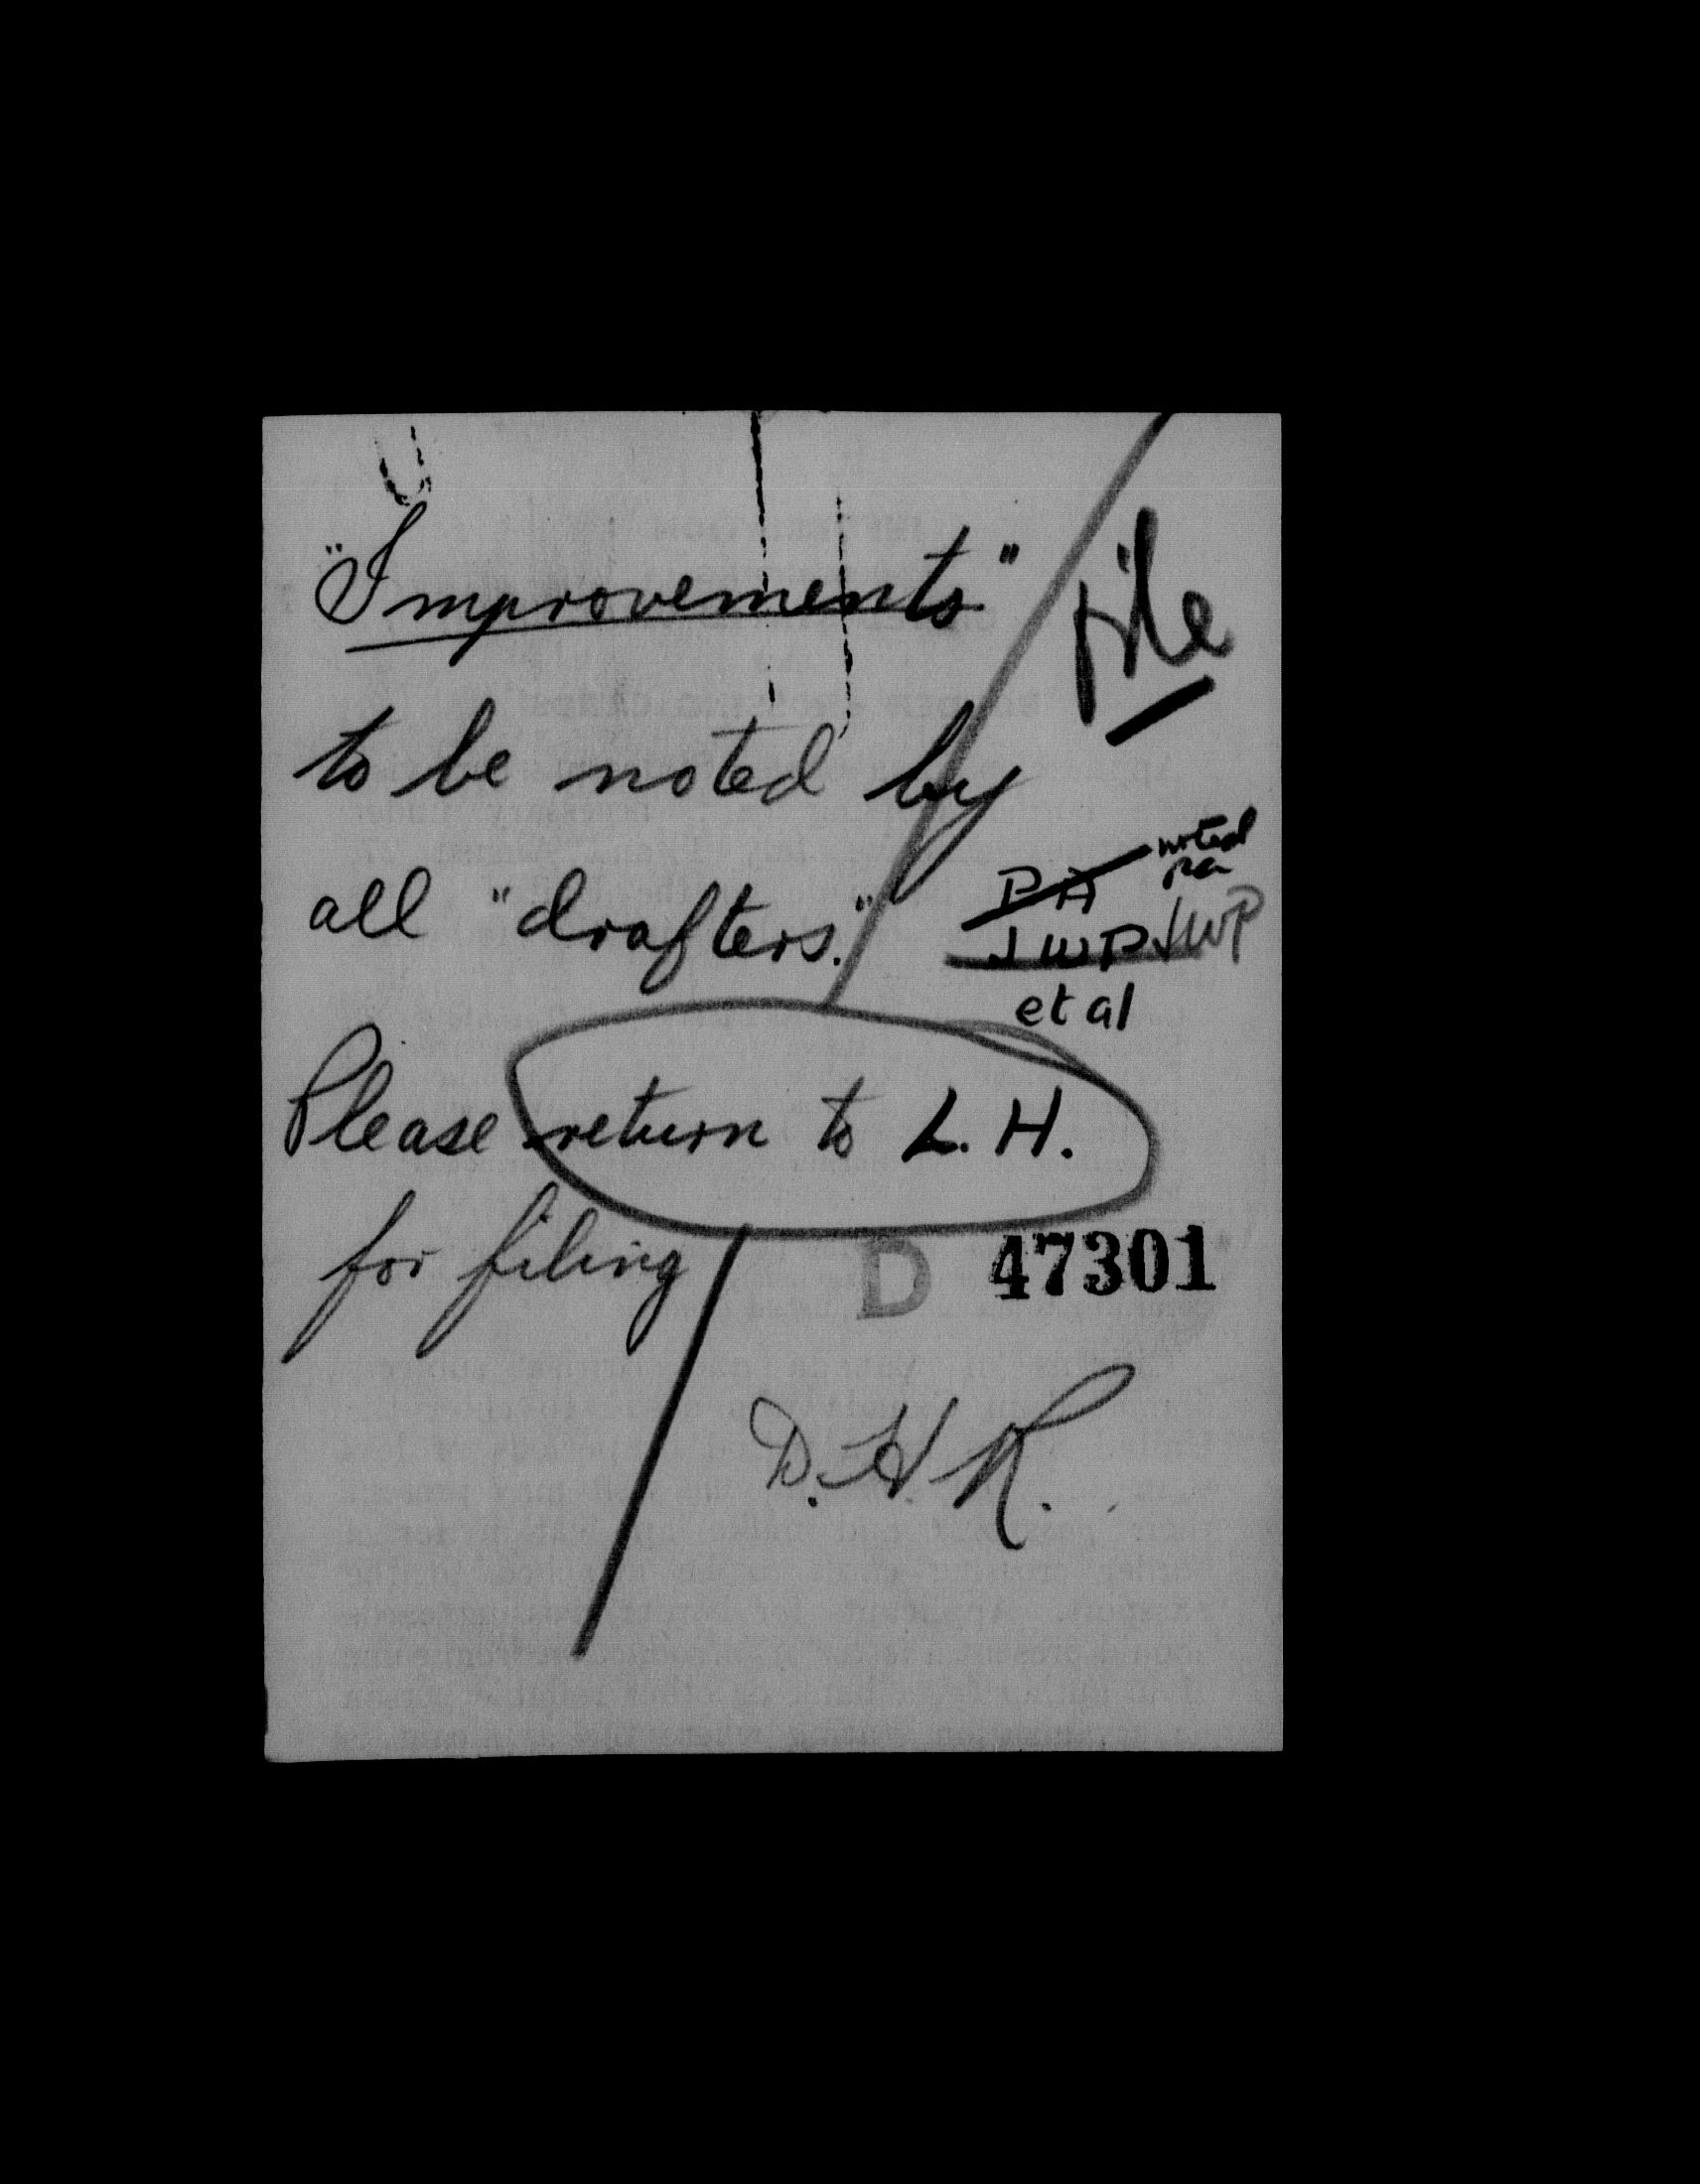 "Improvements"
file
to be noted by
all "drafters."
PA noted
pa
JWP JWP
et al
Please return to L. H.
for filing
D 47301
D. H R.